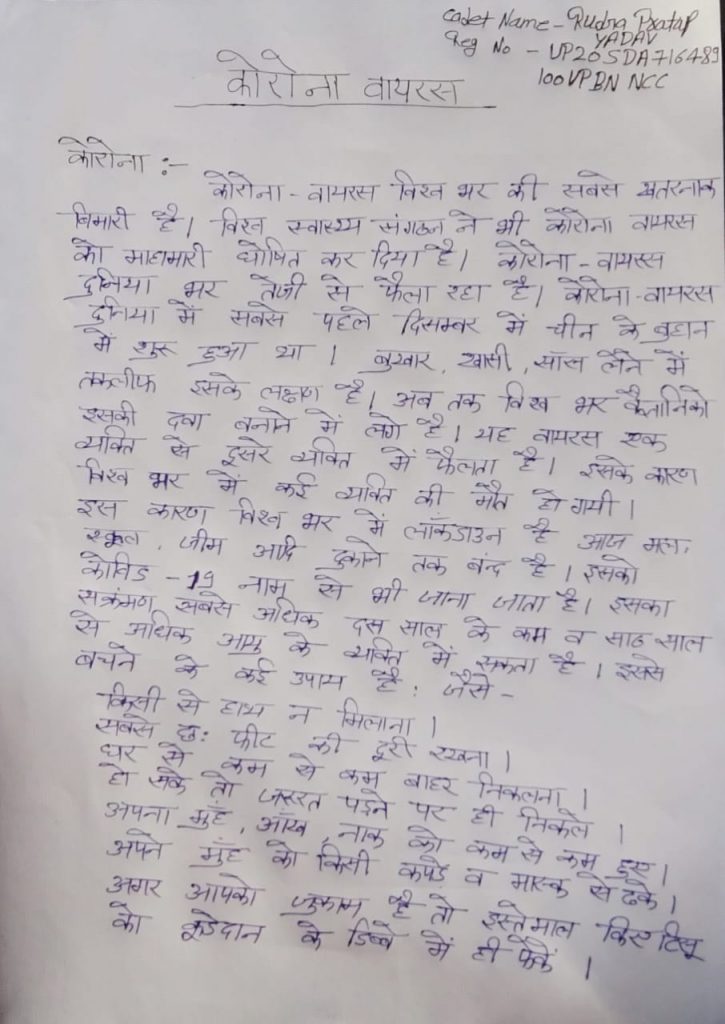 Cadet Name - Rudra Pratap
YADAV
Reg No - UP20SDA716489
100UPBN NCC
कोरोना वायरस
कोरोना :-
कोरोना - वायरस विश्व भर की सबसे खतरनाक
बिमारी है। विश्व स्वास्थ्य संगठन ने भी कोरोना वायरस
को माहामारी घोषित कर दिया है। कोरोना - वायरस
दुनिया भर तेजी से फैला रहा है। कोरोना-वायरस
दुनिया में सबसे पहले दिसम्बर में चीन के वुहान
में शुरू हुआ था । बुखार, खासी, साँस लेने में
तकलीफ इसके लक्षण है। अब तक विश्व भर वैतानिको
इसकी दवा बनाने में लगे है। यह वायरस एक
व्यक्ति से दुसरे व्यक्ति में फैलता है। इसके कारण
विश्व भर में कई व्यक्ति की मौत हो गयी।
इस कारण विश्व भर में लॉकडाउन है आज मल,
स्कूल, जीम आदि दुकाने तक बन्द है। इसको
कोविड -19 नाम से भी जाना जाता है। इसका
सक्रंमण सबसे अधिक दस साल के कम व साठ साल
से अधिक आयु के व्यक्ति में सकता है। इससे
बचने के कई उपाय है; जैसे -
किसी से हाथ न मिलाना।
सबसे छः फीट की दूरी रखना।
घर से कम से कम बाहर निकलना।
हो सके तो जरूरत पड़ने पर ही निकले ।
अपना मुँह, आँख, नाक को कम से कम छुए।
अपने मुँह को किसी कपड़े व मास्क से ढके।
अगर आपको जुकाम है तो इस्तेमाल किए टिशू
को कूडेदान के डिब्बे में ही फेकें ।